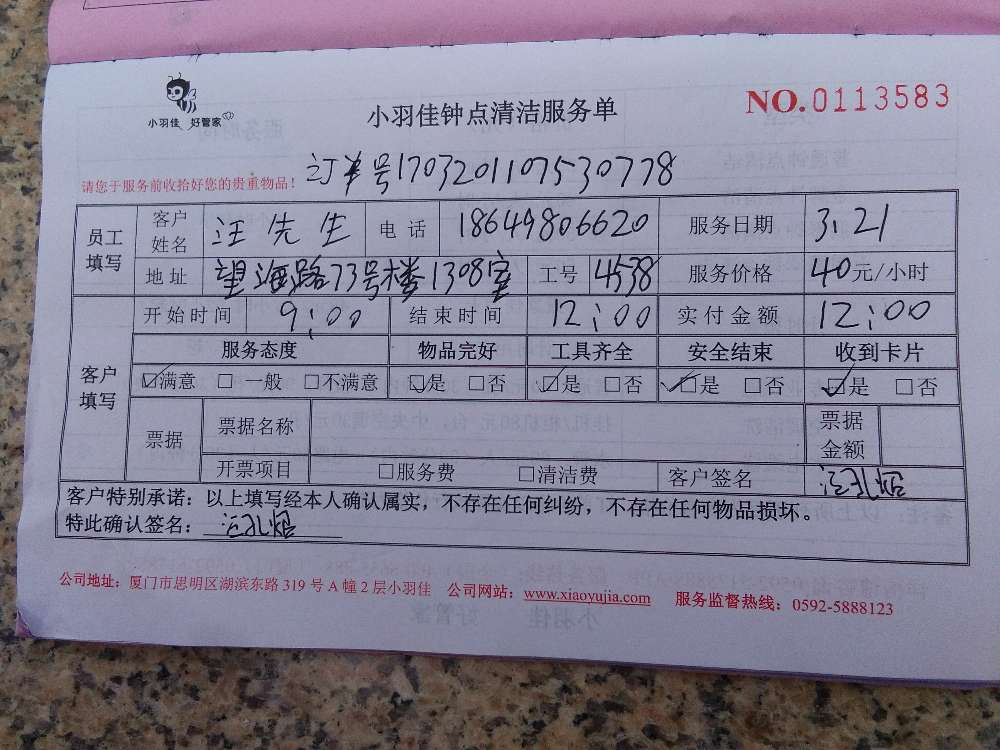 小羽佳 好管家
小羽佳钟点清洁服务单
NO.0113583
订单号1703201107530778
请您于服务前收拾好您的贵重物品!
员工填写 客户姓名 汪先生 电话 18649806620 服务日期 3.21
地址 望海路73号楼1308室 工号 4538 服务价格 40元/小时
客户填写 开始时间 9:00 结束时间 12:00 实付金额 12:00
服务态度 物品完好 工具齐全 安全结束 收到卡片
☑满意 □一般 □不满意 ☑是 □否 ☑是 □否 ☑是 □否 ☑是 □否
票据 票据名称 票据金额
开票项目 □服务费 □清洁费 客户签名
客户特别承诺:以上填写经本人确认属实,不存在任何纠纷,不存在任何物品损坏。
特此确认签名:
公司地址:厦门市思明区湖滨东路 319 号 A 幢 2 层小羽佳 公司网站:www.xiaoyujia.com 服务监督热线:0592-5888123